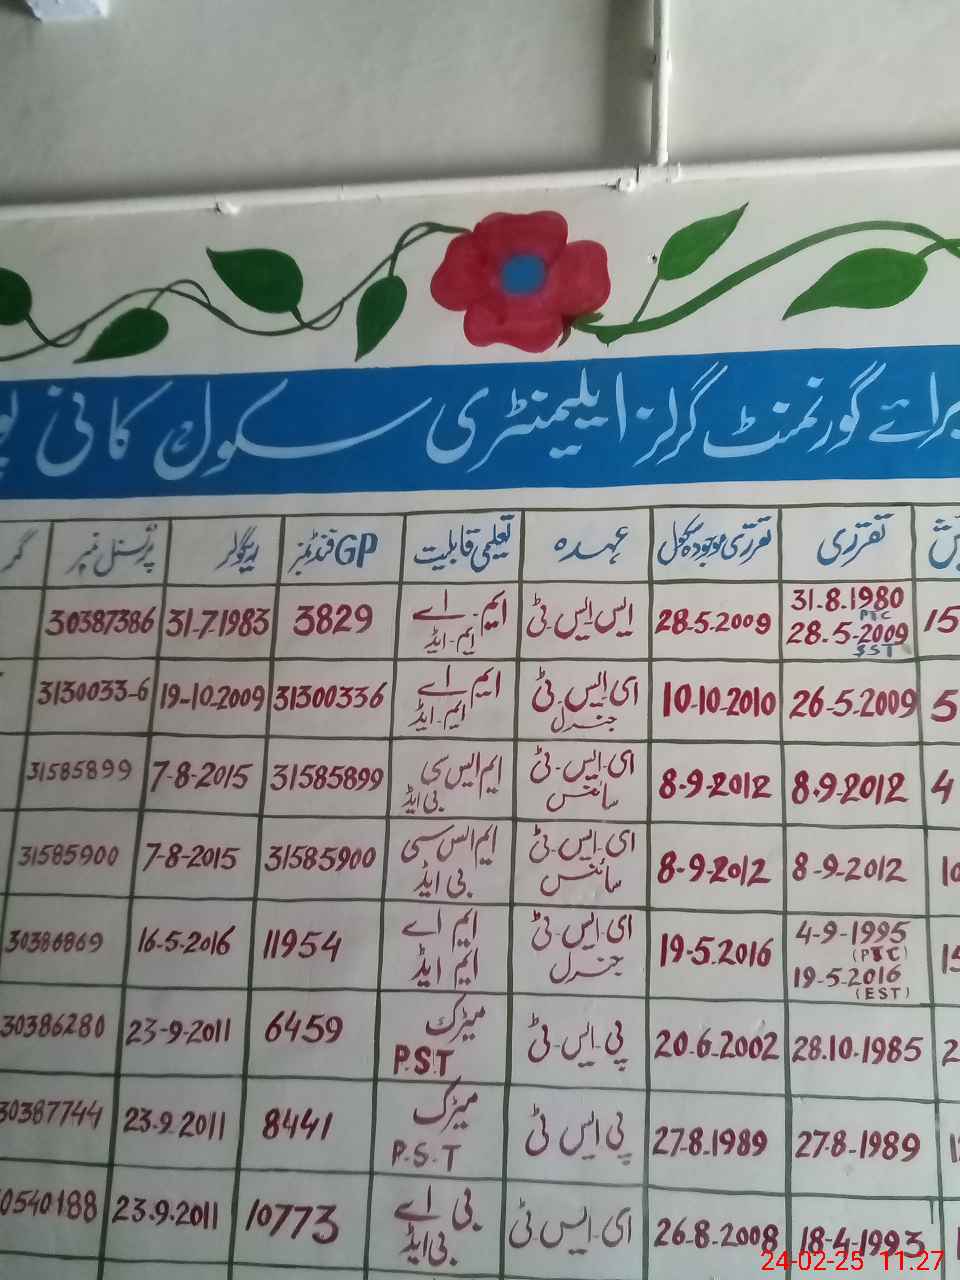 برائے گورنمنٹ گرلز ایلیمنٹری سکول کانی
تقرری تقرری موجودہ سکول عہدہ تعلیمی قابلیت GP فنڈ نمبر ریگولر پرسنل نمبر
15 31.8.1980 PTC 28.5-2009 SST 28.5.2009 ایس ایس ٹی ایم-اے ایم-ایڈ 3829 31.7.1983 30387386
5 26-5-2009 10.10.2010 ای ایس ٹی جنرل ایم اے ایم-ایڈ 31300336 19-10-2009 3130033-6
4 8.9.2012 8-9-2012 ای-ایس-ٹی سائنس ایم ایس سی بی ایڈ 31585899 7-8-2015 31585899
8-9-2012 8-9-2012 ای-ایس-ٹی سائنس ایم ایس سی بی ایڈ 31585900 7-8-2015 31585900
4-9-1995 (PTC) 19-5-2016 (EST) 19-5-2016 ای-ایس-ٹی جنرل ایم اے ایم ایڈ 11954 16-5-2016 30386869
28.10.1985 20.6.2002 پی-ایس-ٹی میٹرک P.S.T 6459 23-9-2011 30386280
27-8-1989 27.8.1989 پی ایس ٹی میٹرک P.S.T 8441 23.9.2011 30387744
18-4-1993 26-8-2008 ای-ایس ٹی بی اے بی ایڈ 10773 23.9.2011 0540188
24-02-25 11.27